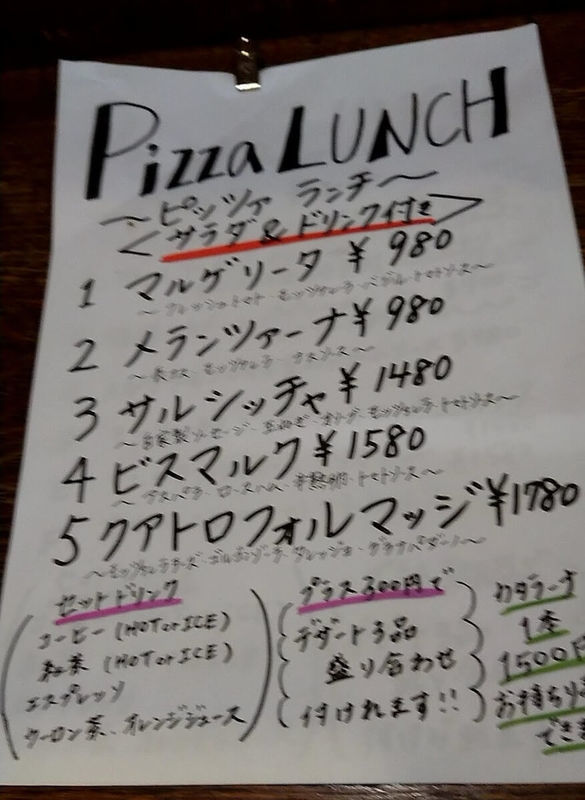 Pizza LUNCH
〜ピッツァ ランチ〜
<サラダ&ドリンク付き>
1 マルゲリータ ¥980
〜フレッシュトマト・モッツァレラ・バジル・トマトソース〜
2 メランツァーナ ¥980
モッツァレラ
3 サルシッチャ ¥1480
〜自家製ソーセージ・玉ねぎ・オリーブ・モッツァレラ・トマトソース〜
4 ビスマルク ¥1580
〜アスパラ・ロースハム・半熟卵・トマトソース〜
5 クアトロフォルマッジ ¥1780
セットドリンク
コーヒー (HOTorICE)
紅茶 (HOTorICE)
エスプレッソ
ウーロン茶、オレンジジュース
プラス300円で
デザート3品
盛り合わせ
付けれます!!
カタラーナ
1本
1500円
お持ち
でき